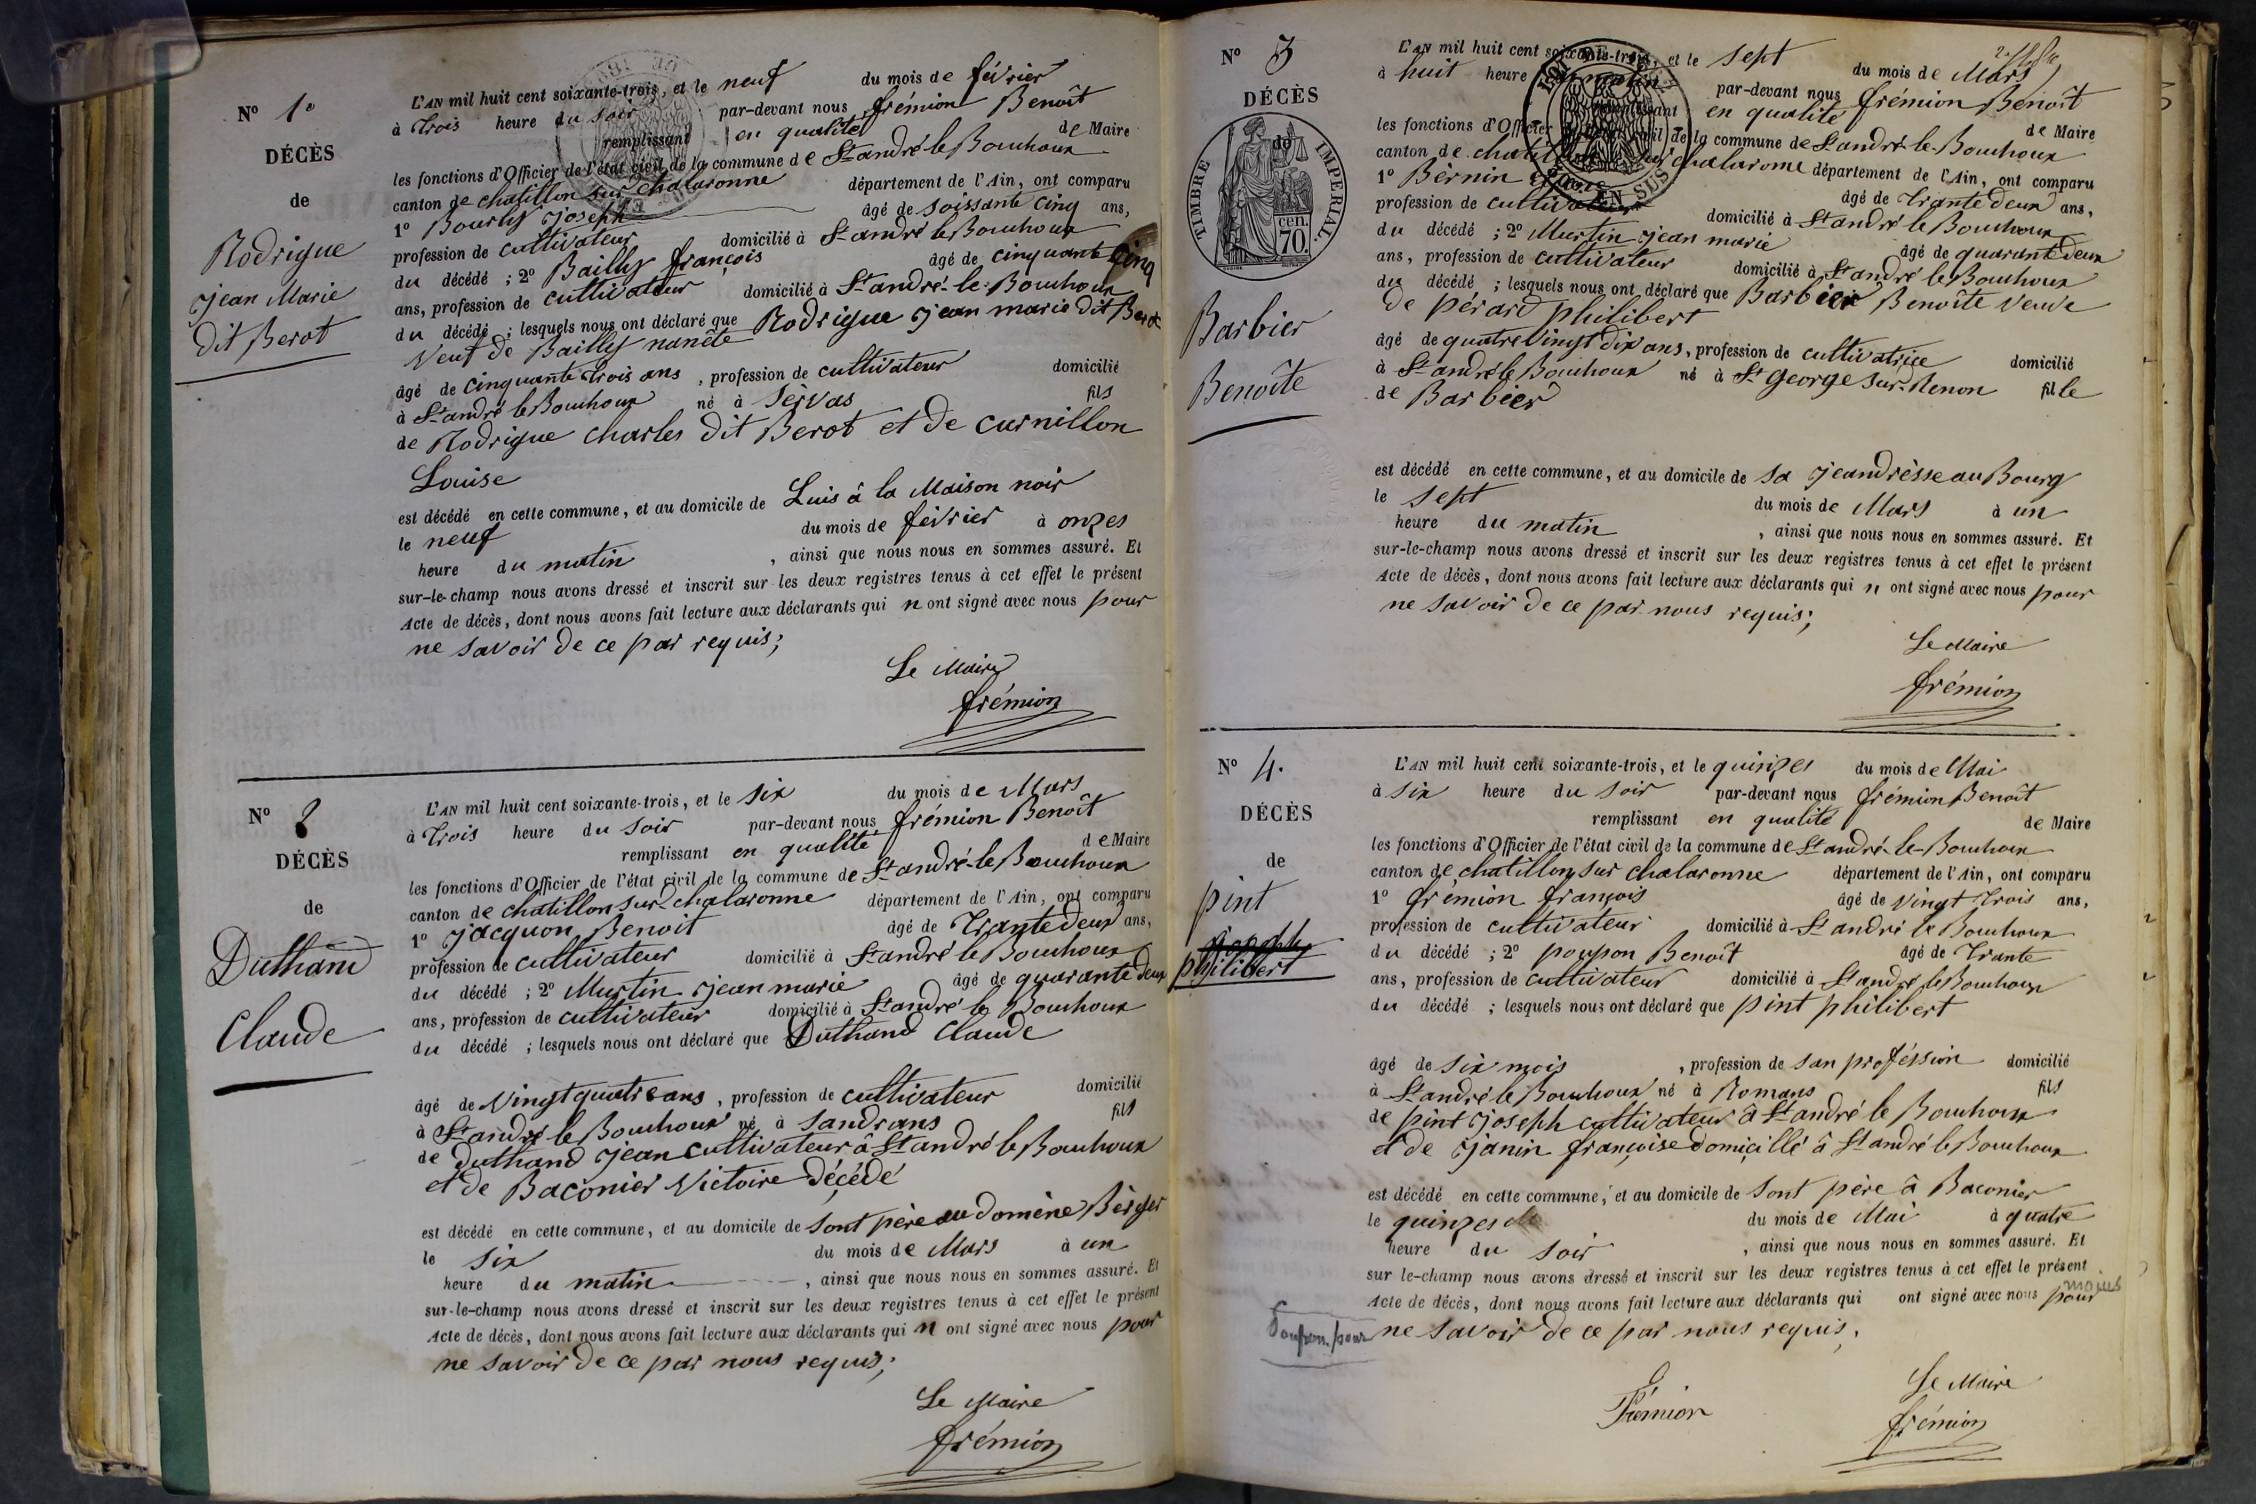 N° 1°
DÉCÈS
de
Rodrigue
jean Marie
dit Berot
L'AN mil huit cent soixante-trois, et le neuf du mois de février
à trois heure du soir par-devant nous frémion Benoît
remplissant en qualité de Maire
les fonctions d'Officier de l'état civil de la commune de St andré le Bouchoux
canton de chatillon sur chalaronne département de l'Ain, ont comparu
1° Bourly joseph âgé de soissante cinq ans,
profession de cultivateur domicilié à St andré le Bouchoux
du décédé ; 2° Bailly françois âgé de cinquante cinq
ans, profession de cultivateur domicilié à St andré-le-Bouchoux
du décédé ; lesquels nous ont déclaré que Rodrigue jean marie dit Berot
Veuf de Bailly nanéte
âgé de cinquante trois ans , profession de cultivateur domicilié
à St andré le Bouchoux né à Sèrvas fils
de Rodrigue charles dit Berot et de curnillon
Louise
est décédé en cette commune, et au domicile de Luis â la Maison noir
le neuf du mois de février à onzes
heure du matin , ainsi que nous nous en sommes assuré. Et
sur-le-champ nous avons dressé et inscrit sur les deux registres tenus à cet effet le présent
Acte de décès, dont nous avons fait lecture aux déclarants qui n ont signé avec nous pour
ne savoir de ce par requis;
Le Maire
frémion
N° 2
DÉCÈS
de
Duthand
Claude
L'AN mil huit cent soixante-trois, et le six du mois de Mars
à trois heure du soir par-devant nous frémion Benoît
remplissant en qualité de Maire
les fonctions d'Officier de l'état civil de la commune de St andré-le-Bouchoux
canton de chatillon sur-chalaronne département de l'Ain, ont comparu
1° jacquon Benoit âgé de trante deux ans,
profession de cultivateur domicilié à St andré le Bouchoux
du décédé ; 2° Murtin jean marie âgé de quarante deux
ans, profession de cultivateur domicilié à St andré le Bouchoux
du décédé ; lesquels nous ont déclaré que Duthand Claude
âgé de Vingt quatre ans , profession de cultivateur domicilié
à St andré le Bouchoux né à Sandrans fils
de duthand jean cultivateur â St andré le Bouchoux
et de Baconier Victoire décédé
est décédé en cette commune, et au domicile de sont père au domène Bèrger
le six du mois de Mars à un
heure du matin , ainsi que nous nous en sommes assuré. Et
sur-le-champ nous avons dressé et inscrit sur les deux registres tenus à cet effet le présent
Acte de décès, dont nous avons fait lecture aux déclarants qui n ont signé avec nous pour
ne savoir de ce par nous requis;
Le Maire
frémion
N° 3
DÉCÈS
de
TIMBRE IMPÉRIAL.
cen.
70.
Barbier
Benoîte
L'AN mil huit cent soixante-trois, et le sept du mois de Mars
à huit heure du matin par-devant nous frémion Benoît
remplissant en qualité de Maire
les fonctions d'Officier de l'état civil de la commune de St andré-le-Bouchoux
canton de chatillon sur chalarome département de l'Ain, ont comparu
1° Bèrnin âgé de trante deux ans,
profession de cultivateur domicilié à St andré le Bouchoux
du décédé ; 2° Murtin jean marie âgé de quarante deux
ans, profession de cultivateur domicilié à St andré le Bouchoux
du décédé ; lesquels nous ont déclaré que Barbier Benoîte veuve
de pérard philibert
âgé de quatre Vingt dix ans, profession de cultivatrice domicilié
à St andré le Bouchoux né à St George sur-Renon fille
de Barbier
est décédé en cette commune, et au domicile de sa jeandrèsse au Bourg
le sept du mois de Mars à un
heure du matin , ainsi que nous nous en sommes assuré. Et
sur-le-champ nous avons dressé et inscrit sur les deux registres tenus à cet effet le présent
Acte de décès, dont nous avons fait lecture aux déclarants qui n ont signé avec nous pour
ne savoir de ce par nous requis;
Le Maire
frémion
N° 4.
DÉCÈS
de
pint
joseph
philibert
L'AN mil huit cent soixante-trois, et le quinzes du mois de Mai
à six heure du soir par-devant nous frémion Benoît
remplissant en qualité de Maire
les fonctions d'Officier de l'état civil de la commune de St andré-le-Bouchoux
canton de chatillon sur chalaronne département de l'Ain, ont comparu
1° frémion françois âgé de vingt trois ans,
profession de cultivateur domicilié à St andré le Bouchoux
du décédé ; 2° poupon Benoît âgé de trante
ans, profession de cultivateur domicilié à St andré le Bouchoux
du décédé ; lesquels nous ont déclaré que pint philibert
âgé de six mois , profession de san proféssion domicilié
à St andré le Bouchoux né à Romans fils
de pint joseph cultivateur â St andré le Bouchoux
et de janin françoise domicillé â St andré le Bouchoux
est décédé en cette commune, et au domicile de sont père â Baconier
le quinzes du mois de Mai à quatre
heure du soir , ainsi que nous nous en sommes assuré. Et
sur le-champ nous avons dressé et inscrit sur les deux registres tenus à cet effet le présent
Acte de décès, dont nous avons fait lecture aux déclarants qui ont signé avec nous pour
moins
Poupon pour ne savoir de ce par nous requis,
Frémion
Le Maire
frémion